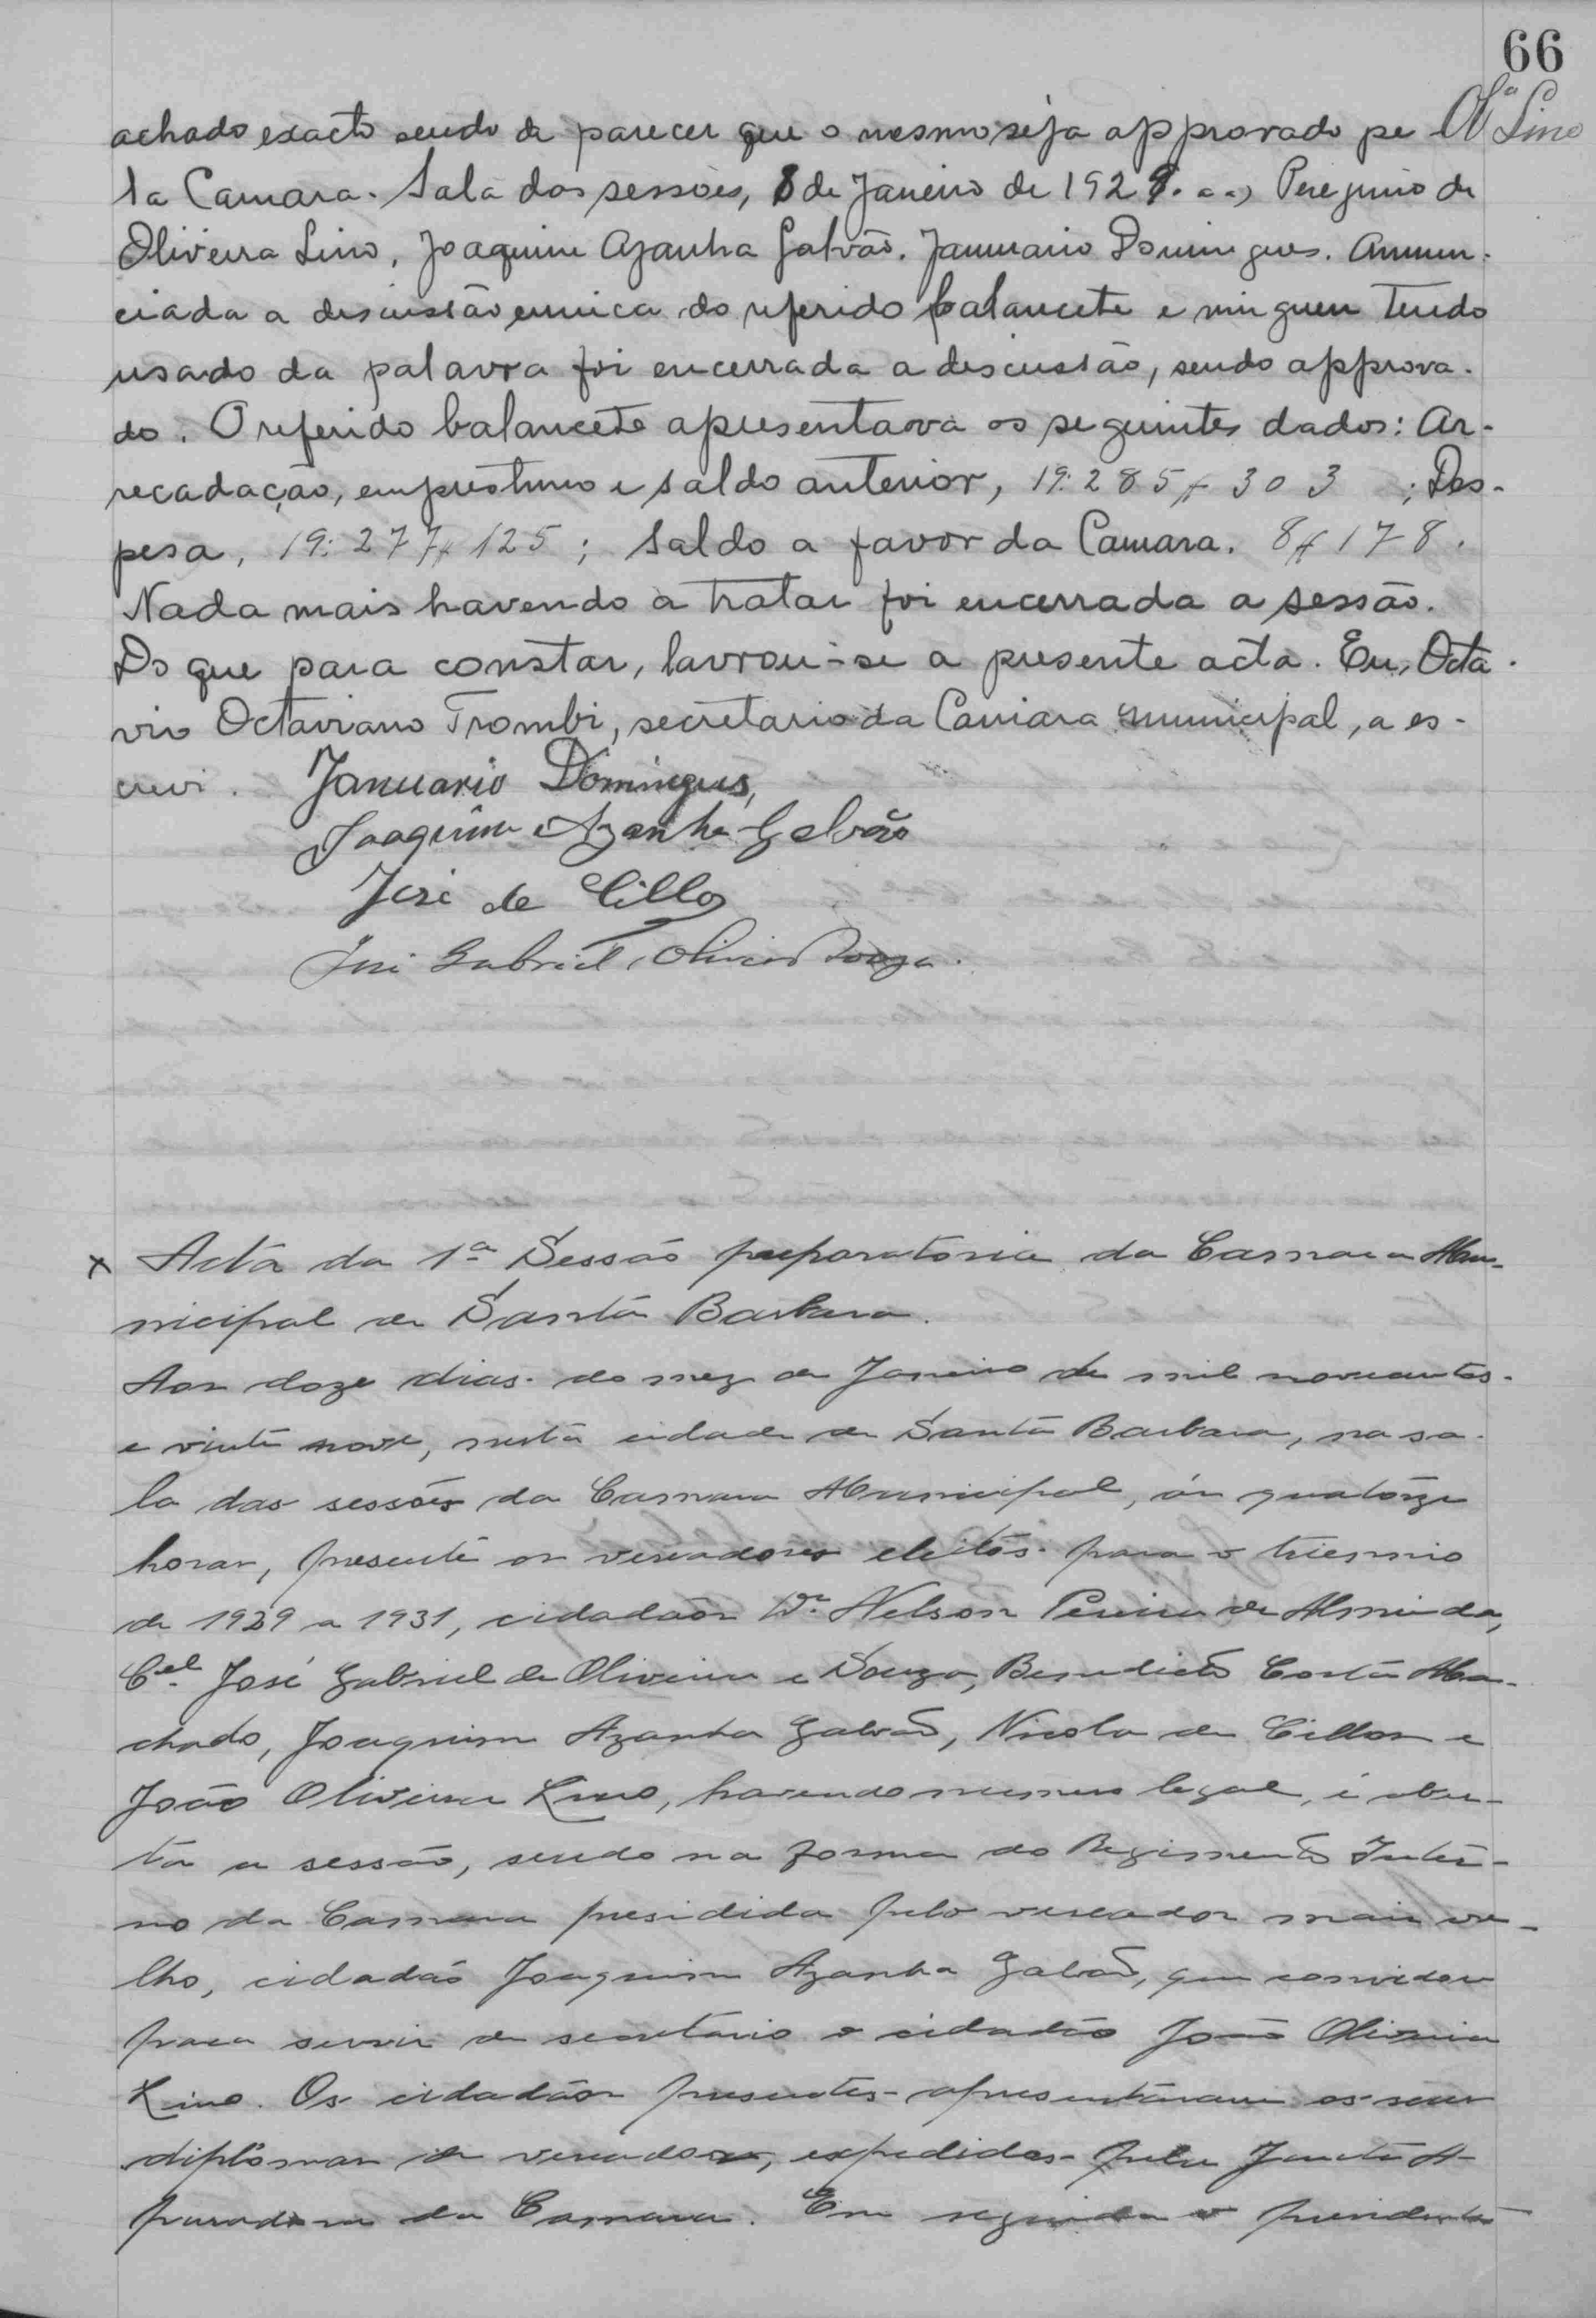 66
Olª Lino
achado exacto sendo de parecer que o mesmo seja approvado pe
la Camara. Sala das sessões, 8 de Janeiro de 1929. a a) Peregrino de
Oliveira Lino, Joaquim Azanha Galvão, Januario Domingues. Annun-
ciada a discussão unica do referido balancete e ninguem tendo
usado da palavra foi encerrada a discussão, sendo approva-
do. O referido balancete apresentava os seguintes dados: Ar-
recadação, emprestimo e saldo anterior, 19:285$303 ; Des-
pesa, 19:277$125 ; Saldo a favor da Camara. 8$178.
Nada mais havendo a tratar foi encerrada a sessão.
Do que para constar, lavrou-se a presente acta. Eu, Octa-
vio Octaviano Trombi, secretario da Camara Municipal, a es-
crevi. Januario Domingues,
Joaquim Azanha Galvão
José de Cillo
José Gabriel Oliveira Souza.
x Acta da 1ª Sessão preparatoria da Camara Mu-
nicipal de Santa Barbara.
Aos doze dias do mez de Janeiro de mil novecentos
e vinte nove, nesta cidade de Santa Barbara, na sa-
la das sessões da Camara Municipal, ás quatorze
horas, presente os vereadores eleitos para o triennio
de 1929 a 1931, cidadãos Dr. Nelson Pereira de Almeida,
Cel. José Gabriel de Oliveira e Souza, Benedicto Costa Ma-
chado, Joaquim Azanha Galvão, Nicola de Cillos e
João Oliveira Lino, havendo numero legal, é aber-
ta a sessão, sendo na forma do Regimento Inter-
no da Camara presidida pelo vereador mais ve-
lho, cidadão Joaquim Azanha Galvão, que convidou
para servir de secretario o cidadão João Oliveira
Lino. Os cidadãos presentes apresentaram os seus
diplomas de vereadores, expedidos pela Juncta A-
puradora da Camara. Em seguida o presidente